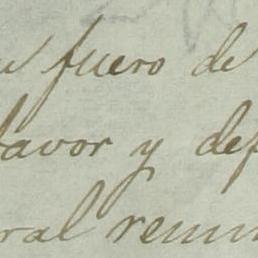 u fuero de
favor y def
ral renun